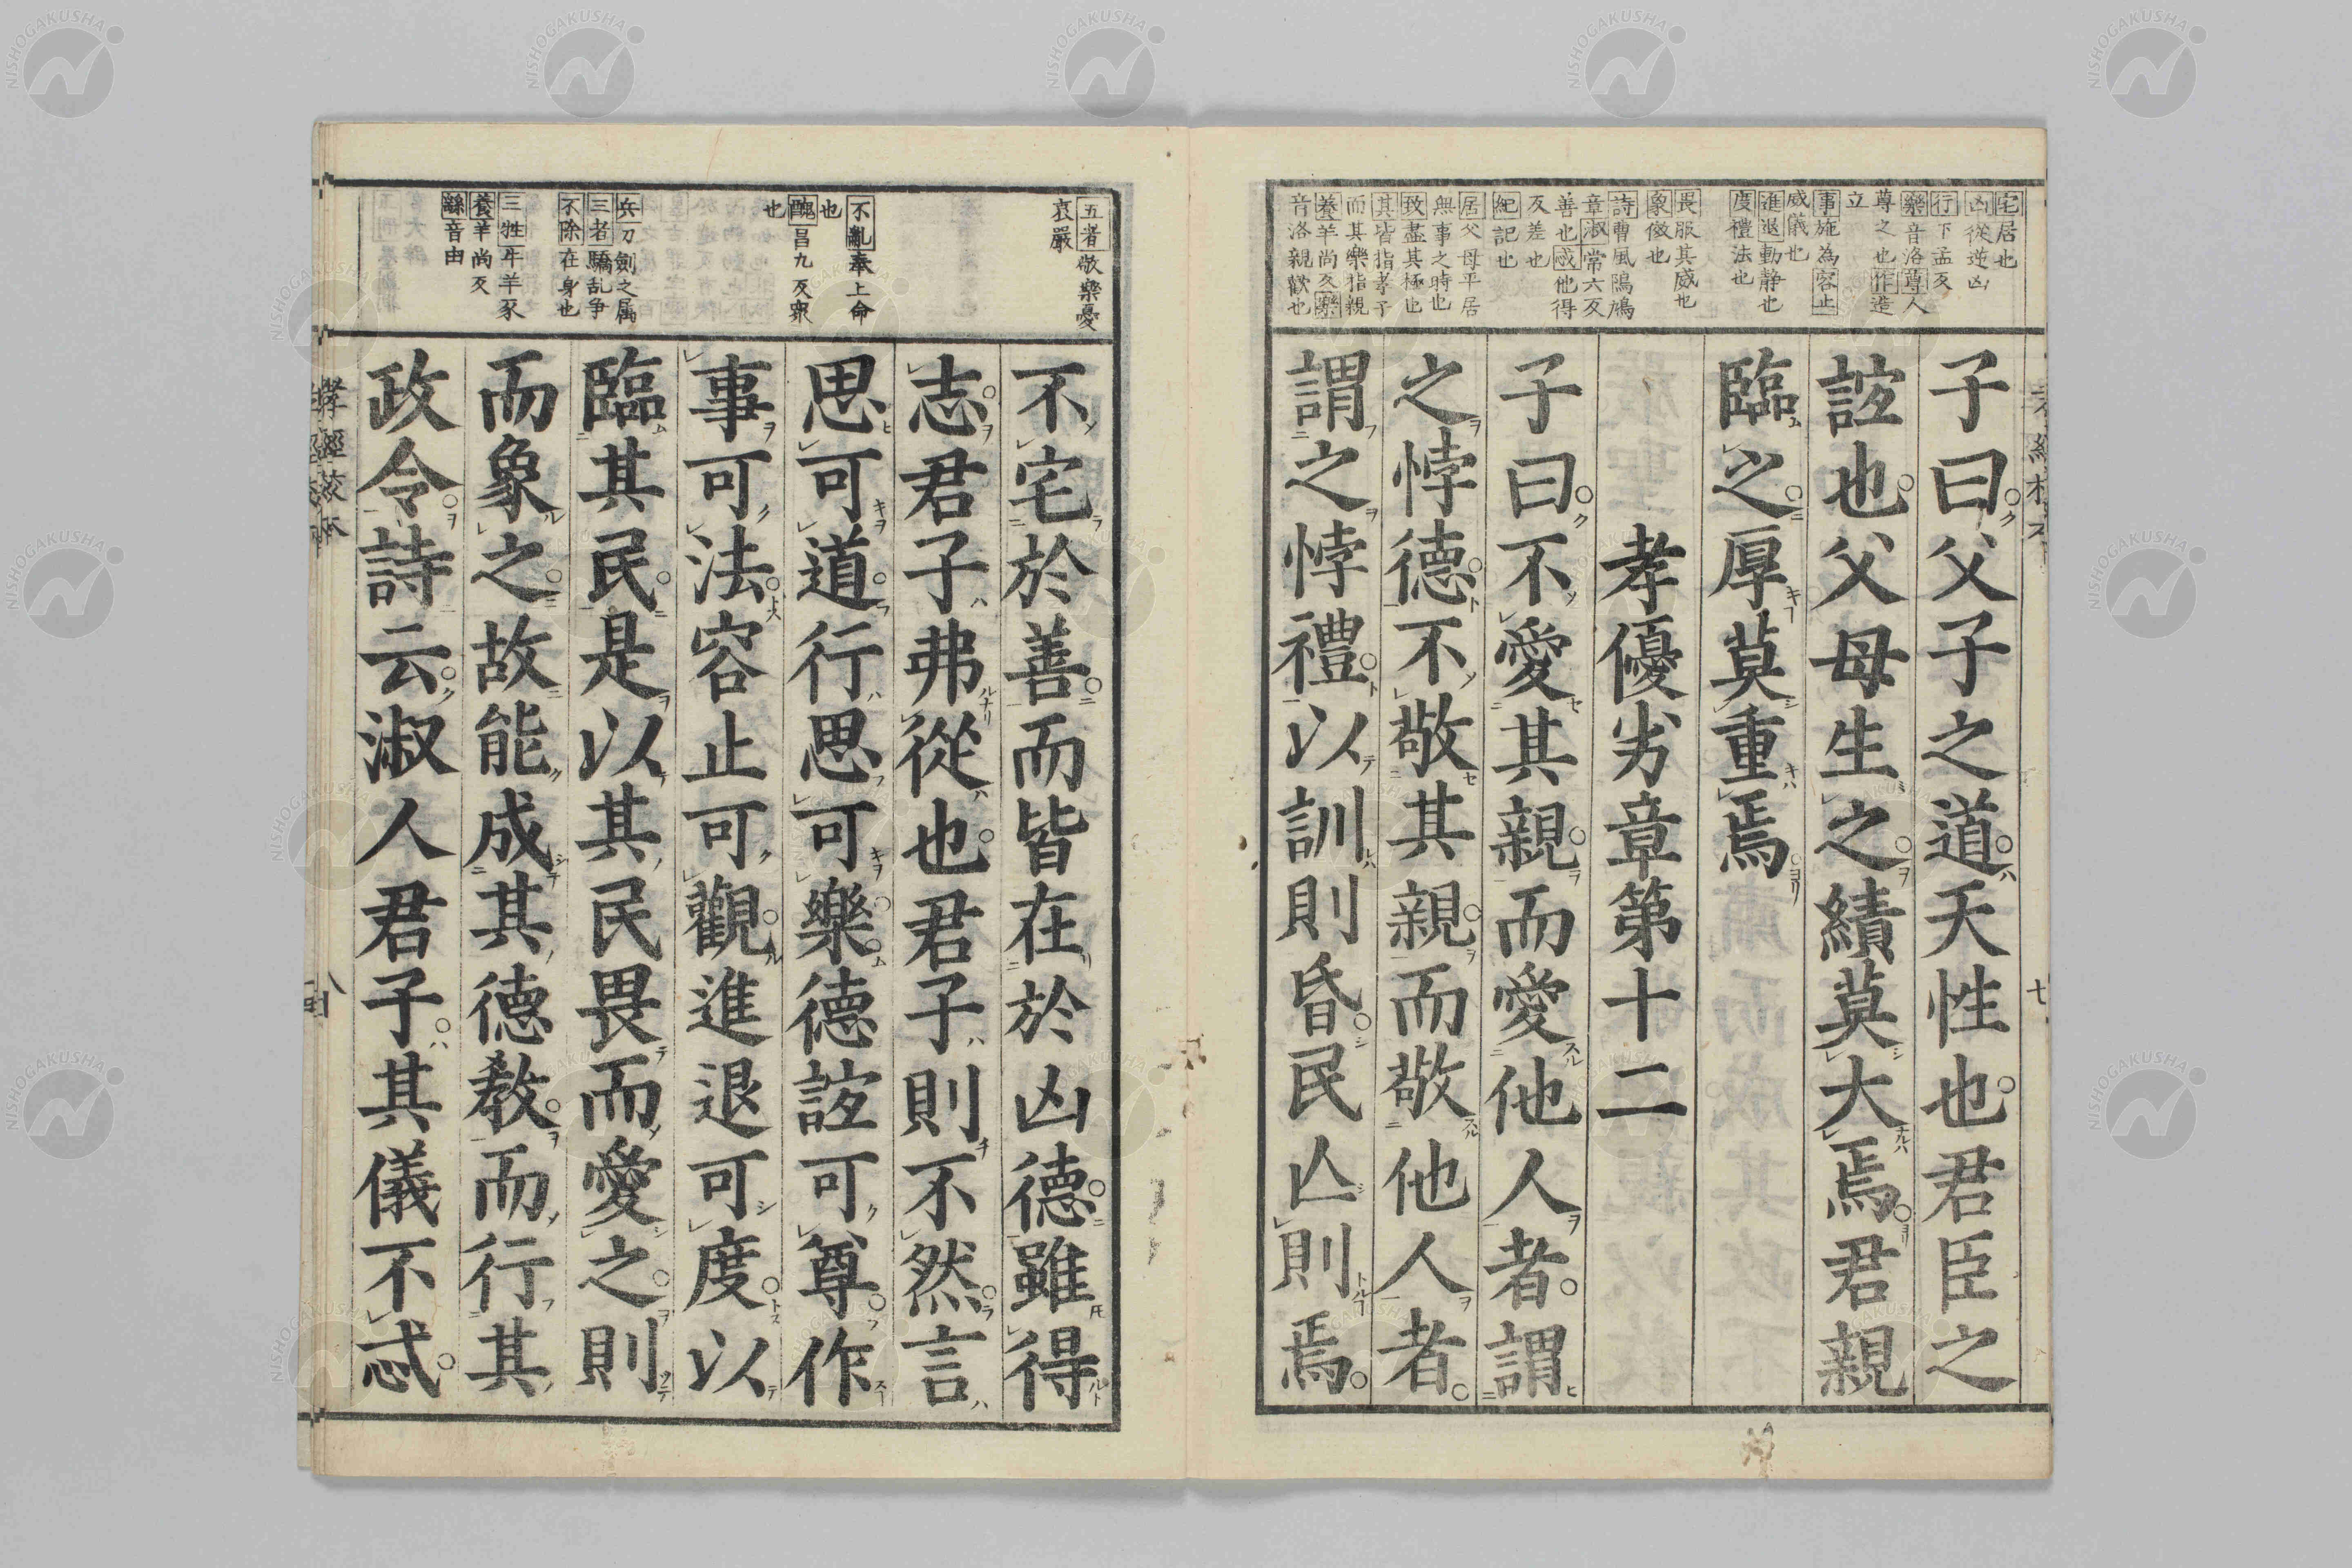 宅居也
凶從逆凶
行下孟反
樂音洛尊人
尊之也作造
立
事施為容止
威儀也
進退動静也
度禮法也
畏服其威也
象傚也
詩曹風鳲鳩
章淑常六反
善也忒他得
反差也
紀記也
居父母平居
無事之時也
致盡其極也
其皆指孝子
而其樂指親
養羊尚反樂
音洛親歡也
七
子曰父子之道天性也君臣之
誼也父母生之績莫大焉君親
臨之厚莫重焉
孝優劣章第十二
子曰不愛其親而愛他人者謂
之悖德不敬其親而敬他人者
謂之悖禮以訓則昏民亾則焉
五者敬樂憂
哀嚴
不亂奉上命
也
醜昌九反衆
也
兵刀劍之属
三者驕乱争
不除在身也
三牲牛羊豕
養羊尚反
繇音由
不宅於善而皆在於凶德雖得
志君子弗從也君子則不然言
思可道行思可樂德誼可尊作
事可法容止可觀進退可度以
臨其民是以其民畏而愛之則
而象之故能成其德教而行其
政令詩云淑人君子其儀不忒
孝經校本
八